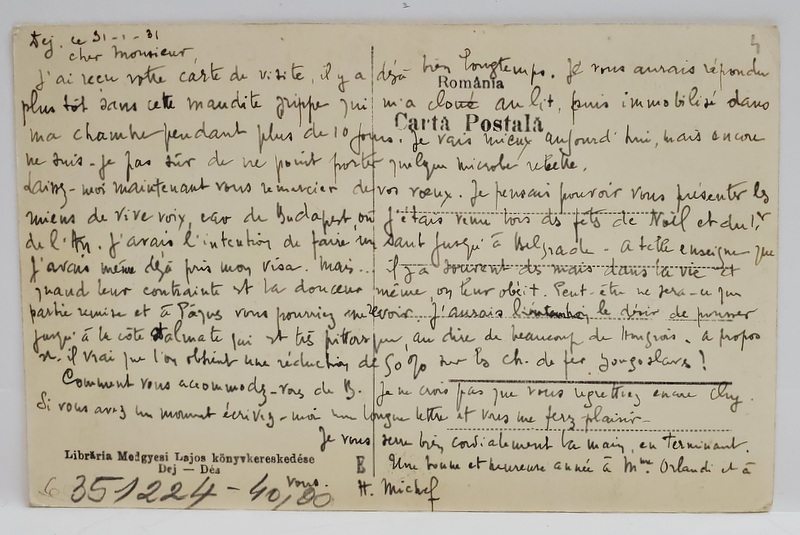 Dej, ce 31-1-31
cher Monsieur,
J'ai reçu votre carte de visite, il y a déjà bien longtemps. Je vous aurais répondu
România
plus tôt sans cette maudite grippe qui m'a cloué au lit, puis immobilisé dans
Carta Postală
ma chambre pendant plus de 10 jours. Je vais mieux aujourd'hui, mais encore
ne suis-je pas sûr de ne point porter quelque microbe rebelle.
Laissez-moi maintenant vous remercier de vos vœux. Je pensais pouvoir vous présenter les
miens de vive voix, car de Budapest, où j'étais venu lors des fêtes de Noël et du 1er
de l'An, j'avais l'intention de faire un saut jusqu'à Belgrade - A telle enseigne que
j'avais même déjà pris mon visa. Mais... il y a souvent des mais dans la vie et
quand leur contrainte est la douceur même, on leur obéit. Peut-être ne sera-ce que
partie remise et à Pâques vous pourriez me revoir. J'aurais le désir de pousser
jusqu'à la côte Dalmate qui est très pittoresque au dire de beaucoup de Hongrois. A propos
est-il vrai que l'on obtient une réduction de 50% sur les ch. de fer yougoslaves!
Comment vous accommodez-vous de B. Je ne crois pas que vous regrettiez encore Cluj.
Si vous avez un moment écrivez-moi une longue lettre et vous me ferez plaisir-
Je vous serre bien cordialement la main, en terminant.
Librăria Medgyesi Lajos könyvkereskedése
Dej — Dés
E
Une bonne et heureuse année à Mme Orlandi et à
vous.
H. Michel
351224-40,00